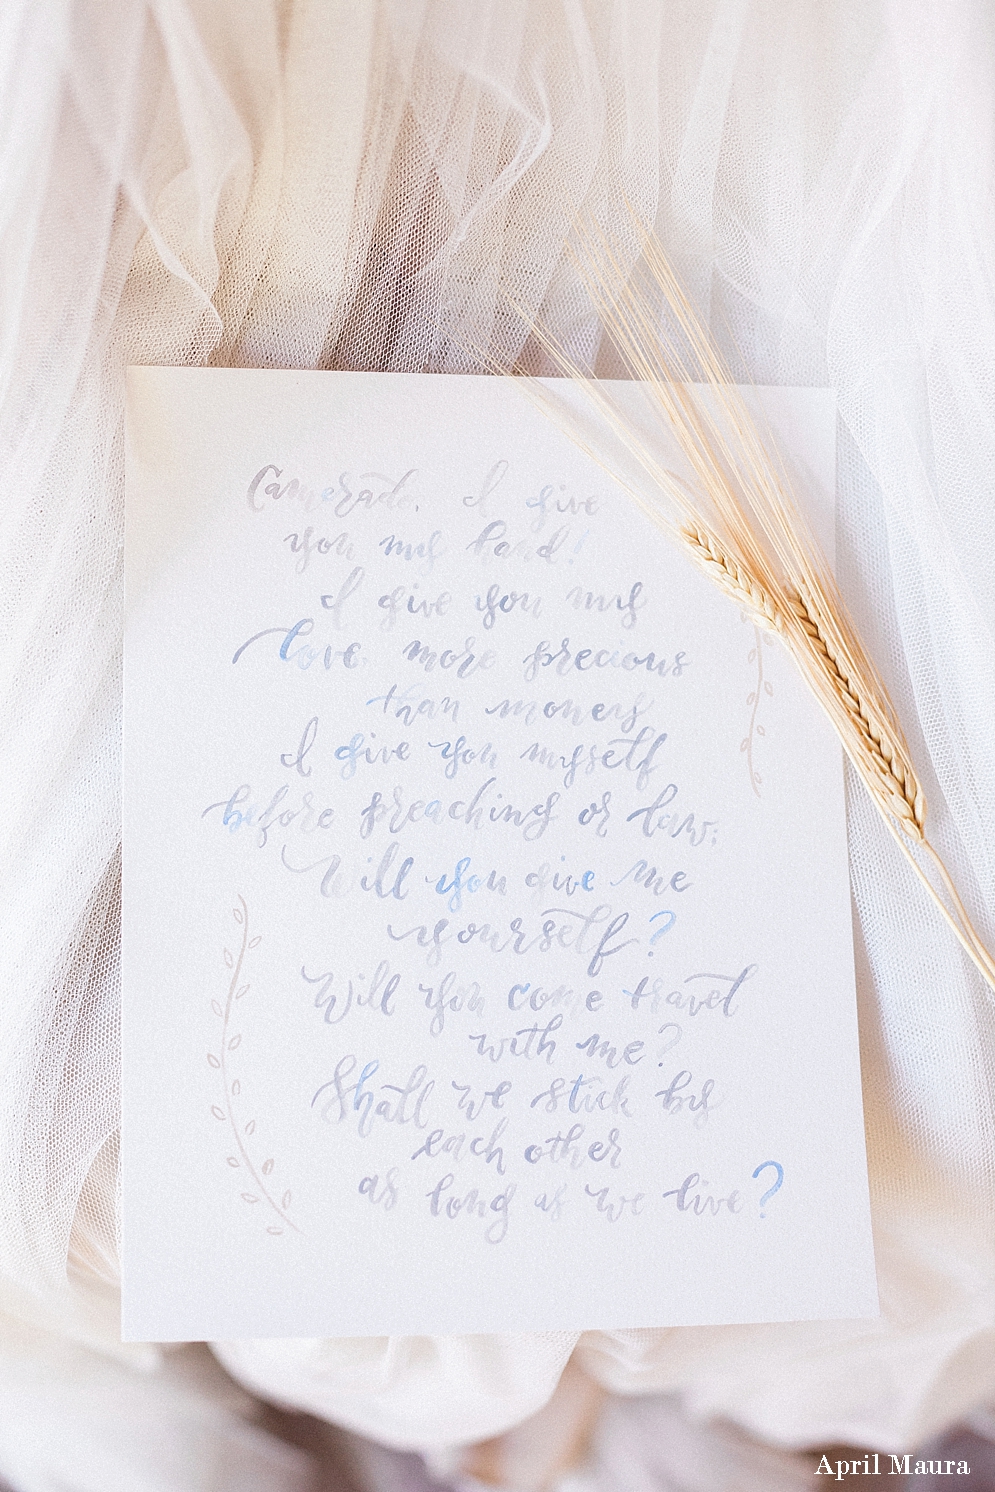 Camerado, I give
you my hand!
I give you my
love more precious
than money
I give you myself
before preaching or law;
Will you give me
yourself?
Will you come travel
with me?
Shall we stick by
each other
as long as we live?
April Maura